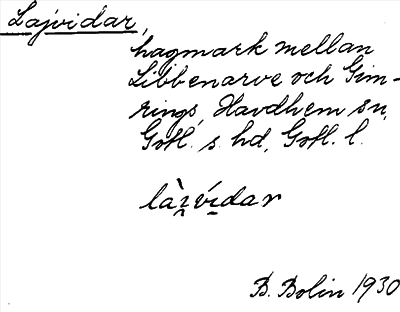 Lajvidar,
hagmark mellan
Libbenarve och Gim-
rings, Havdhem sn,
Gotl. s. hd, Gotl. l.
làı̯vı́dar
B. Bolin 1930